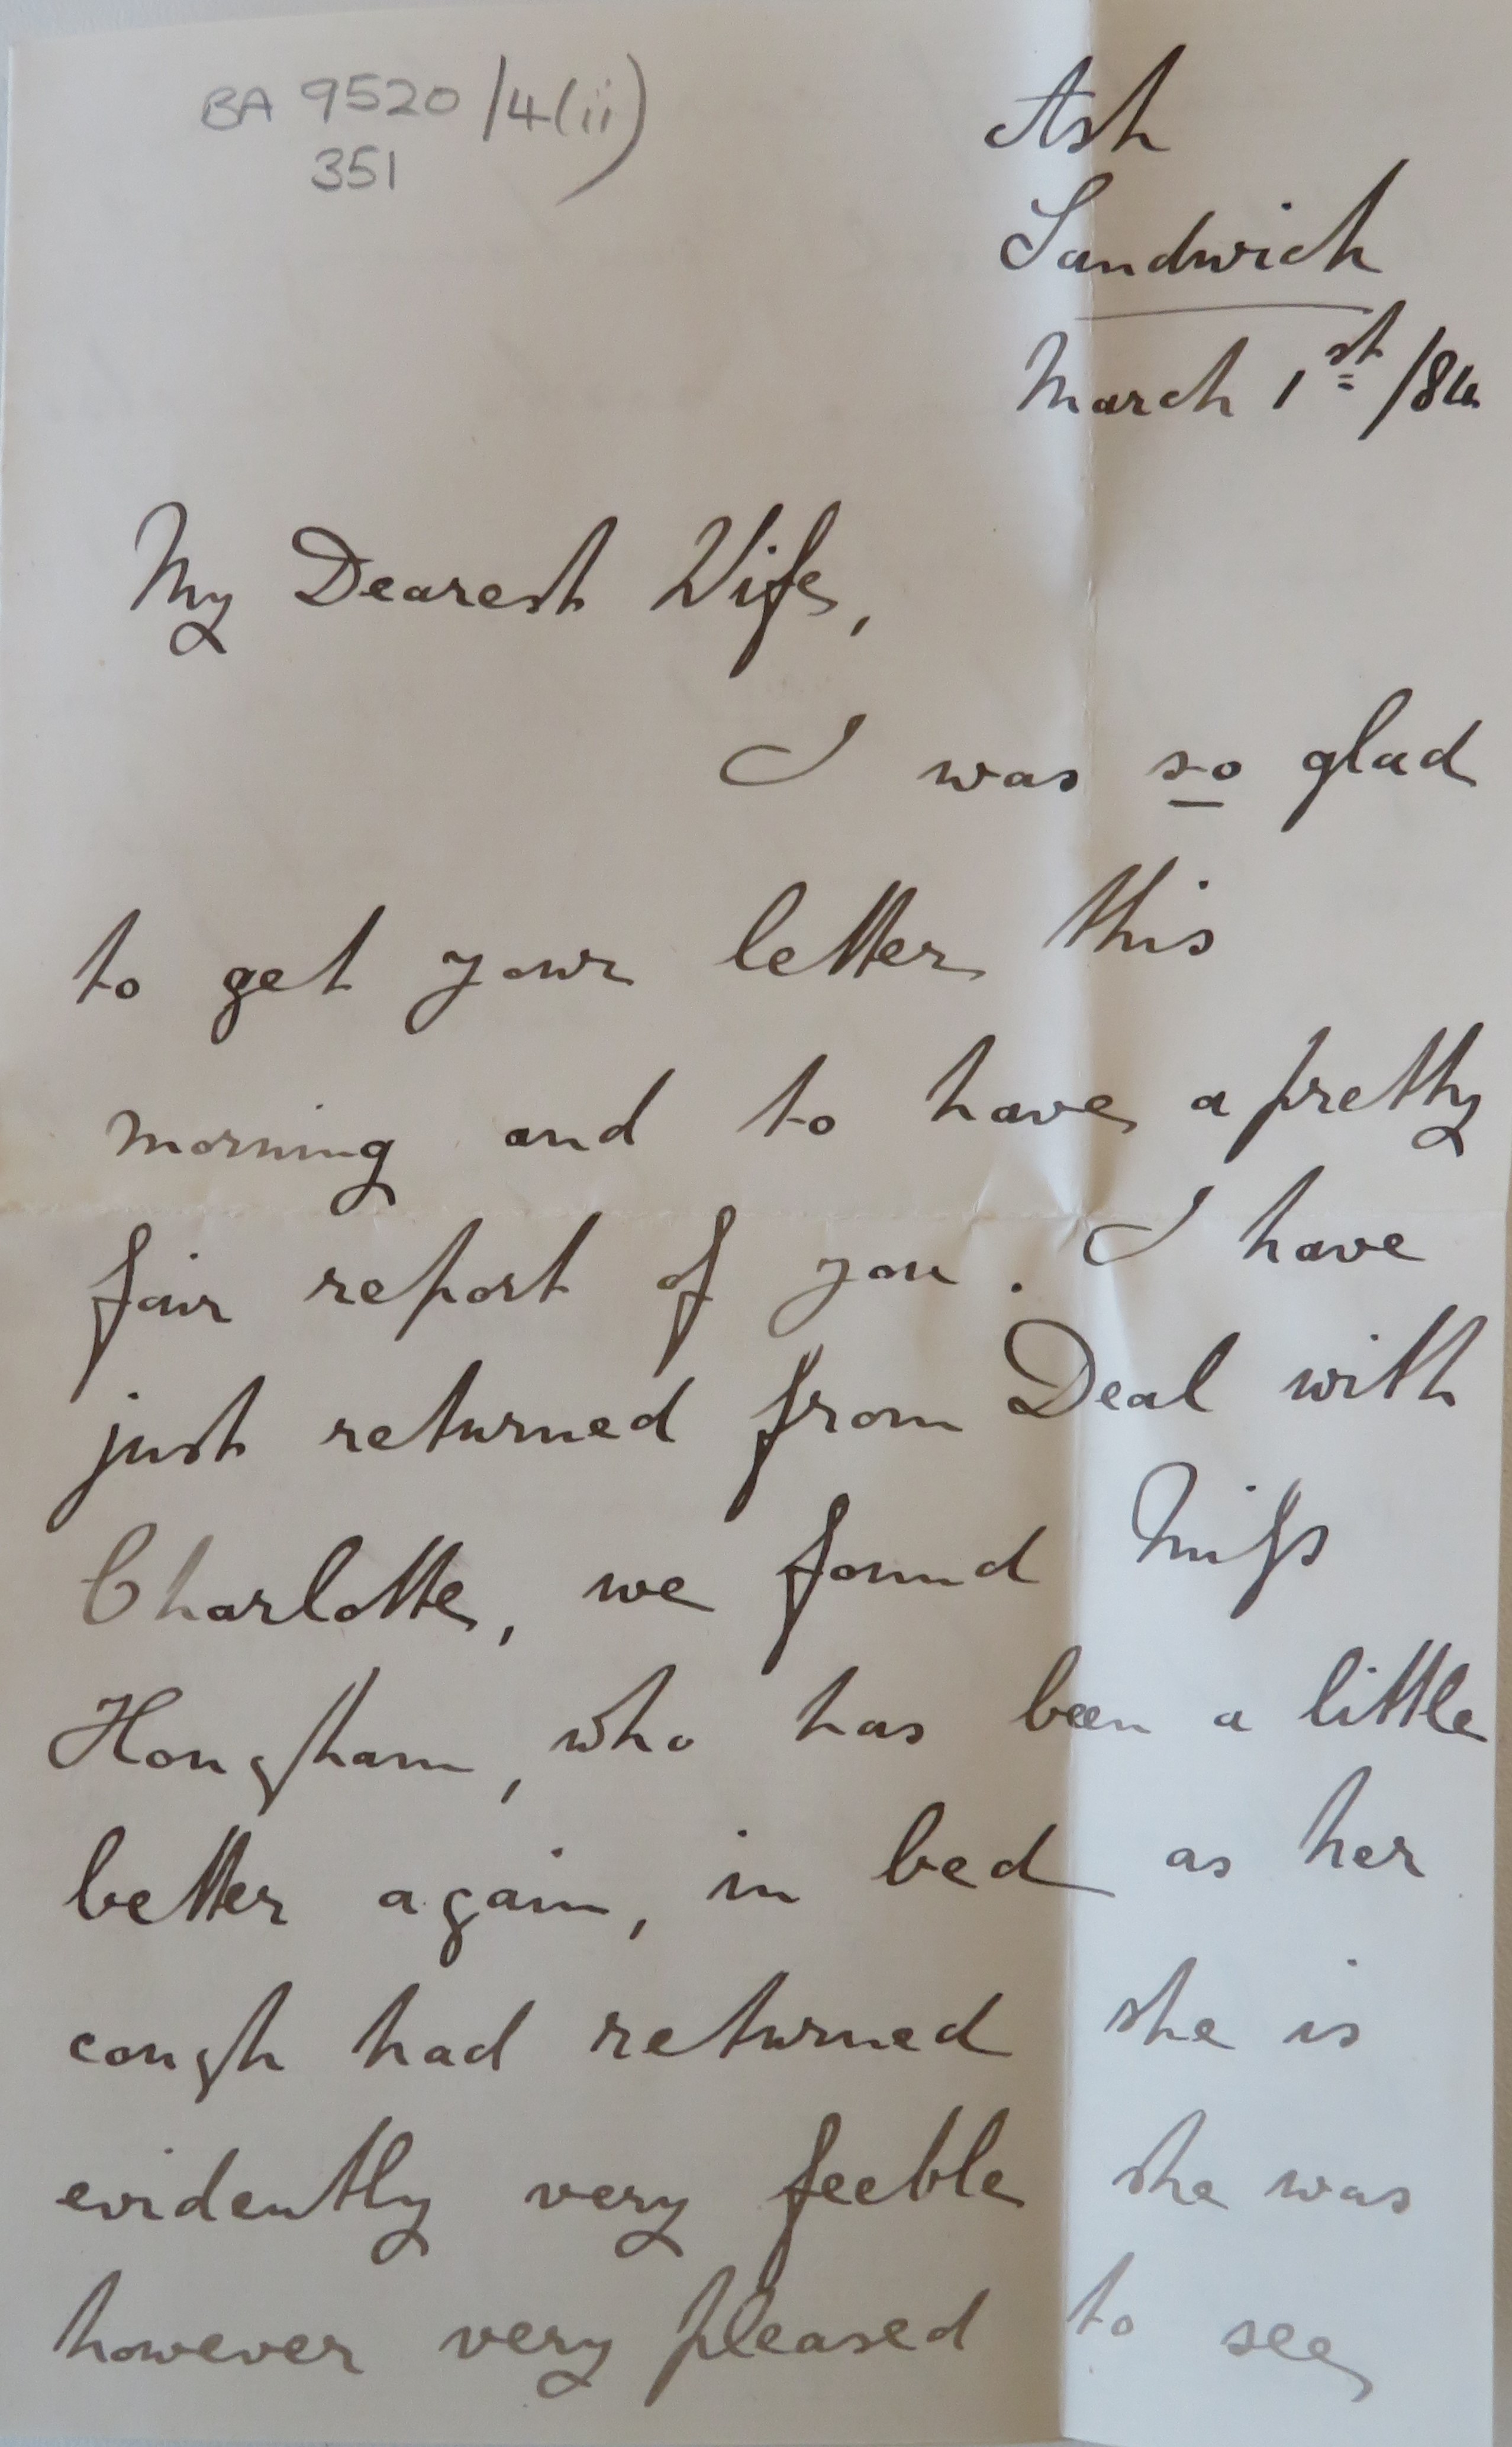 BA 9520/4(ii)
351
Ash
Sandwich
March 1st /86
My Dearest Wife,
I was so glad
to get your letter this
morning and to have a pretty
fair report of you. I have
just returned from Deal with
Charlotte, we found Miss
Hougham, who has been a little
better again, in bed as her
cough had returned she is
evidently very feeble she was
however very pleased to see